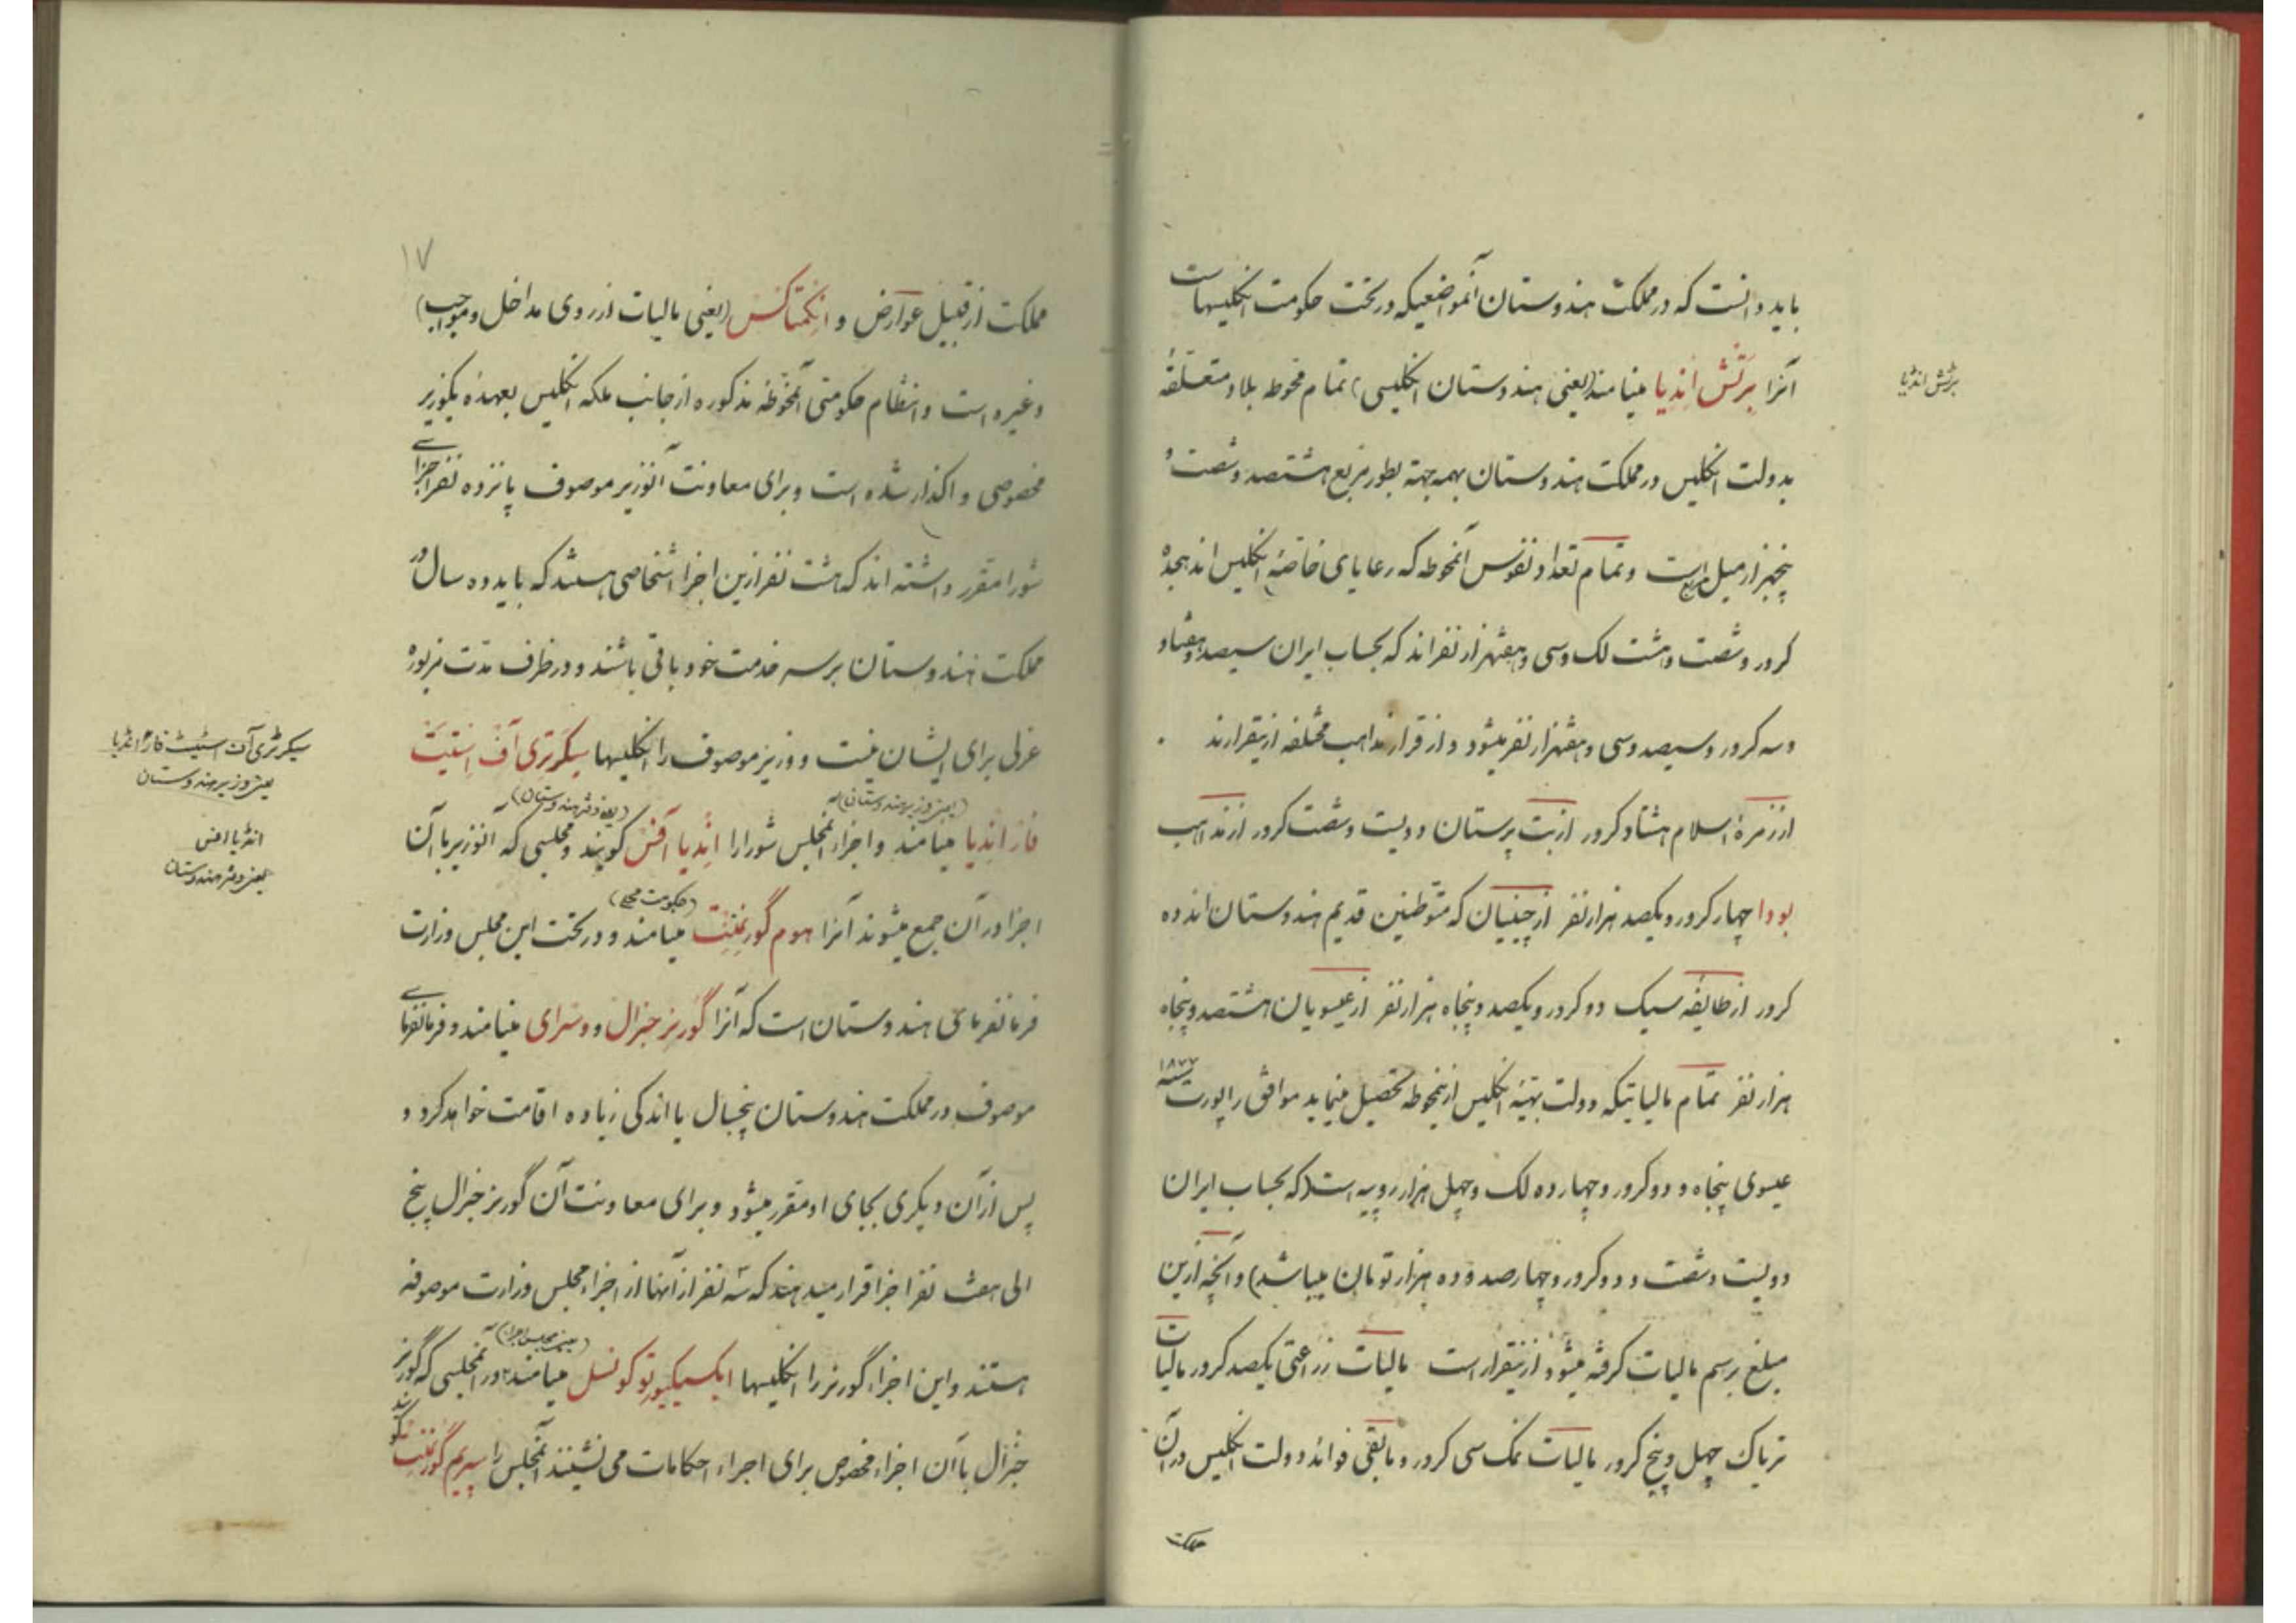 باید دانست که در مملکت هندوستان آنمواضعیکه در تحت حکومت انگلیسهاست
آنرا برتش اندیا مینامند (یعنی هندوستان انگلیسی) تمام محوطه بلاد متعلقهٔ
برتش اندیا
بدولت انگلیس در مملکت هندوستان بهمه جهة بطور مربع هشتصد و شصت و
پنجهزار میل است و تمام تعداد نفوس آنمحوطه که رعایای خاصّهٔ انگلیس اند هجده
کرور و شصت و هشت لک و سی و هفتهزار نفراند که بحساب ایران سیصد و هفتاد
و سه کرور و سیصد و سی و هفتهزار نفر میشود و از قرار مذاهب مختلفه ازینقرارند
از زمرهٔ اسلام هشتاد کرور از بت پرستان دویست و شصت کرور از مذاهب
بودا چهار کرور و یکصد هزار نفر از چینیان که متوطنین قدیم هندوستان اند ده
کرور از طایفه سیک دو کرور و یکصد و پنجاه هزار نفر از عیسویان هشتصد و پنجاه
هزار نفر تمام مالیاتیکه دولت بهیّهٔ انگلیس ازینمحوطه تحصیل مینماید موافق راپورت سنه ۱۸۷۷
عیسوی پنجاه و دو کرور و چهارده لک و چهل هزار روپیه است (که بحساب ایران
دویست و شصت و دو کرور و چهارصد و ده هزار تومان میباشد) و آنچه ازین
مبلغ برسم مالیات گرفته میشود ازینقرار است مالیات زراعتی یکصد کرور مالیات
تریاک چهل و پنج کرور مالیات نمک سی کرور و مابقی فوائد دولت انگلیس در آن
مملکت
۱۷
مملکت از قبیل عوارض و انکمتاکس (یعنی مالیات از روی مداخل و مواجب)
و غیره است و انتظام حکومتی آنمحوطه مذکوره از جانب ملکه انگلیس بعهده یکوزیر
مخصوصی واگذار شده است و برای معاونت آنوزیر موصوف پانزده نفر اجزای
شورا مقرر داشته اند که هشت نفر ازین اجزا اشخاصی هستند که باید ده سال در
مملکت هندوستان بر سر خدمت خود باقی باشند و در ظرف مدّت مزبوره
عزلی برای ایشان نیست و وزیر موصوف را انگلیسها سیکرتری آف استیت
سیکرٹری آف اسٹیٹ فار انڈیا
یعنی وزیر هندوستان
(یعنی وزیر هندوستان) (یعنی دفتر هندوستان)
فار اندیا مینامند و اجزاء آنمجلس شورا را اندیا آفس گویند و مجلسی که آنوزیر با آن
انڈیا افس
یعنی دفتر هندوستان
(حکومت محلی)
اجزا در آن جمع میشوند آنرا هوم گورنمنت مینامند و در تحت این مجلس وزارت
فرمانفرمائی هندوستان است که آنرا گورنر جنرال و وسرای مینامند و فرمانفرمای
موصوف در مملکت هندوستان پنجسال یا اندکی زیاده اقامت خواهد کرد و
پس از آن دیگری بجای او مقرر میشود و برای معاونت آن گورنر جنرال پنج
الی هفت نفر اجزا قرار میدهند که سه نفر از آنها از اجزاء مجلس وزارت موصوفه
(یعنی مجلس اجرا)
هستند و این اجزاء گورنر را انگلیسها ایکسیکیوتو کونسل مینامند و در آنمجلسی که گورنر
جنرال با آن اجزاء مخصوص برای اجراء احکامات می نشینند آنمجلس را سپریم گورنمنت گویند